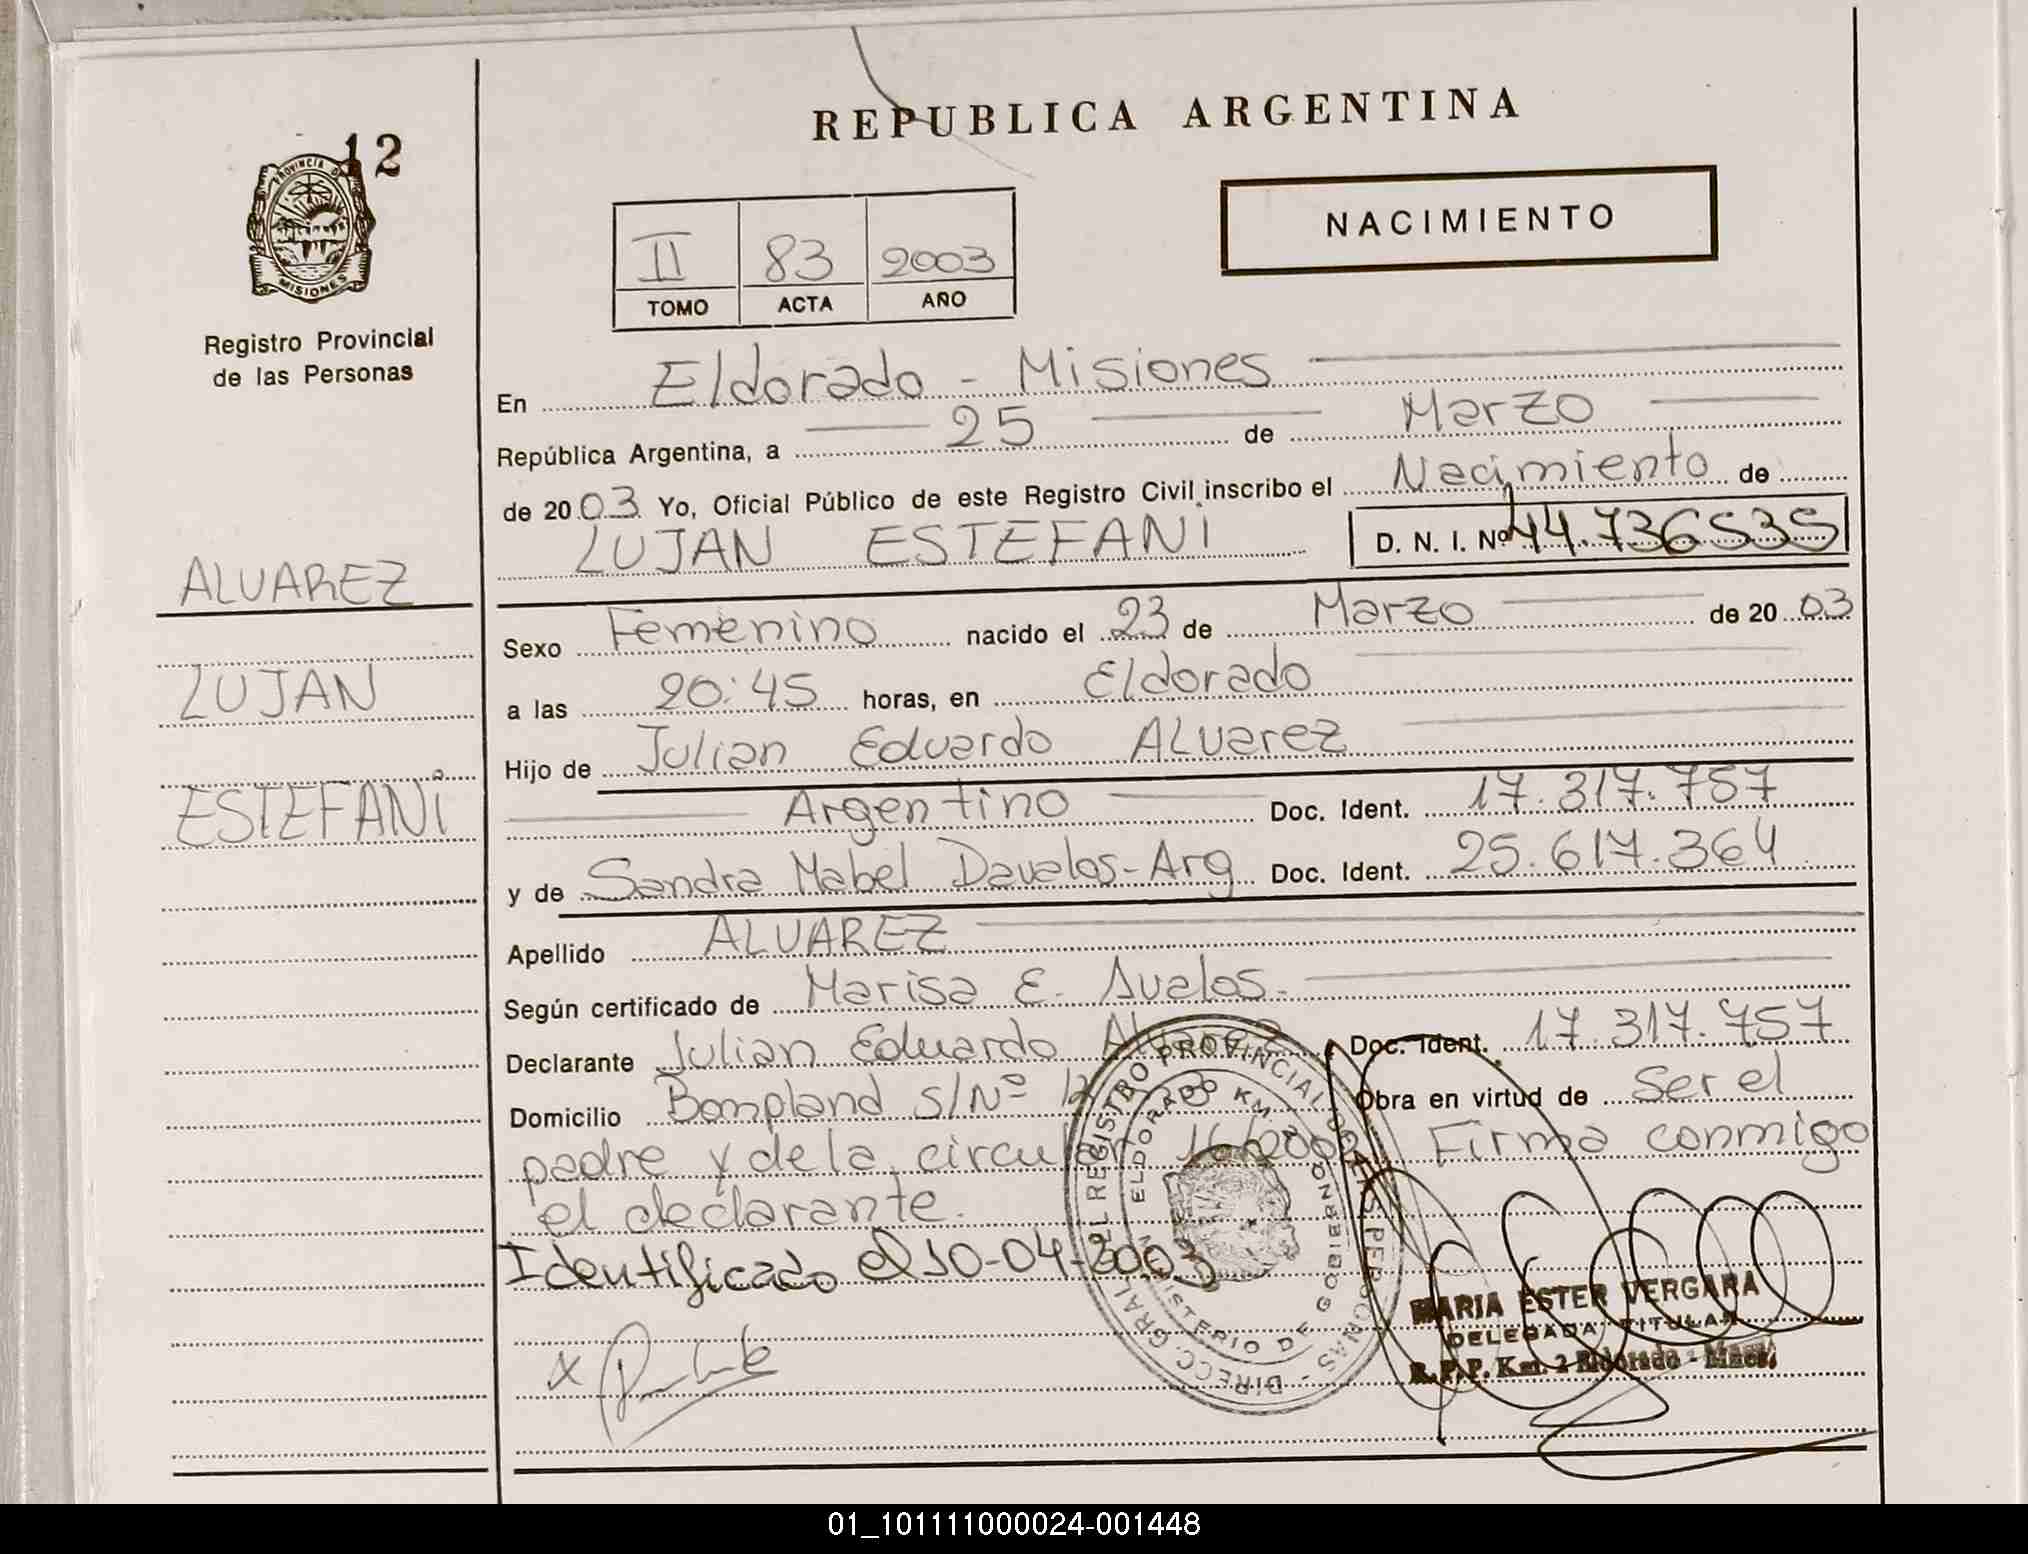 12
PROVINCIA DE
MISIONES
Registro Provincial
de las Personas
ALVAREZ
LUJAN
ESTEFANI
REPUBLICA ARGENTINA
NACIMIENTO
II 83 2003
TOMO ACTA AÑO
En Eldorado - Misiones
República Argentina, a 25 de Marzo
de 2003 Yo, Oficial Público de este Registro Civil inscribo el Nacimiento de
LUJAN ESTEFANI D. N. I. Nº 44.736535
Sexo Femenino nacido el 23 de Marzo de 2003
a las 20:45 horas, en Eldorado
Hijo de Julian Eduardo ALVarez
Argentino Doc. Ident. 17.317.757
y de Sandra Mabel Davalos-Arg Doc. Ident. 25.617.364
Apellido ALVAREZ
Según certificado de Marisa E. Avalos.
Declarante Julian Eduardo Alvarez Doc. Ident. 17.317.757
Domicilio Bompland S/Nº Obra en virtud de Ser el
padre y de la circular 16/2002 Firma conmigo
el declarante.
Identificado el 10-04-2003
DIRECC. GRAL. DEL REGISTRO PROVINCIAL DE LAS PERSONAS
ELDORADO KM.
MINISTERIO DE GOBIERNO
MARIA ESTER VERGARA
DELEGADA TITULAR
R.P.P. Km. 2 Eldorado - Mnes.
01_101111000024-001448